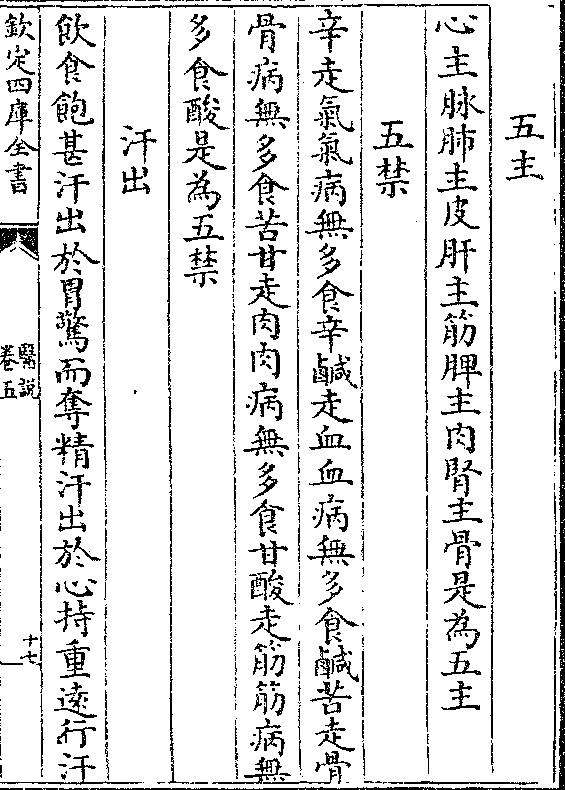 五主
心主脉肺主皮肝主筋脾主肉腎主骨是為五主
五禁
辛走氣氣病無多食辛鹹走血血病無多食鹹苦走骨
骨病無多食苦甘走肉肉病無多食甘酸走筋筋病無
多食酸是為五禁
汗出
飲食飽甚汗出於胃驚而奪精汗出於心持重遠行汗
欽定四庫全書
醫說
卷五
十七